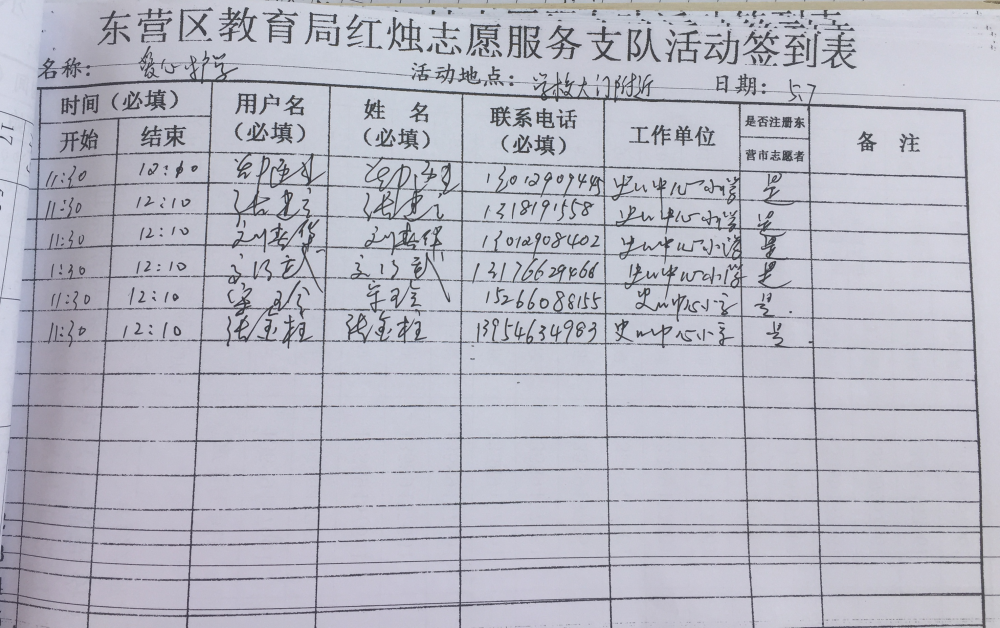 东营区教育局红烛志愿服务支队活动签到表
名称: 爱心护学 活动地点: 学校大门附近 日期: 5.7
时间（必填） 用户名（必填） 姓 名（必填） 联系电话（必填） 工作单位 是否注册东营市志愿者 备 注
开始 结束
11:30 12:10 13012909445 史口中心小学 是
11:30 12:10 张建 张建 1318191558 史口中心小学 是
11:30 12:10 刘春华 刘春华 13012908402 史口中心小学 是
11:30 12:10 13176629466 史口中心小学 是
11:30 12:10 15266088155 史口中心小学 是.
11:30 12:10 张金柱 张金柱 13954634983 史口中心小学 是
17